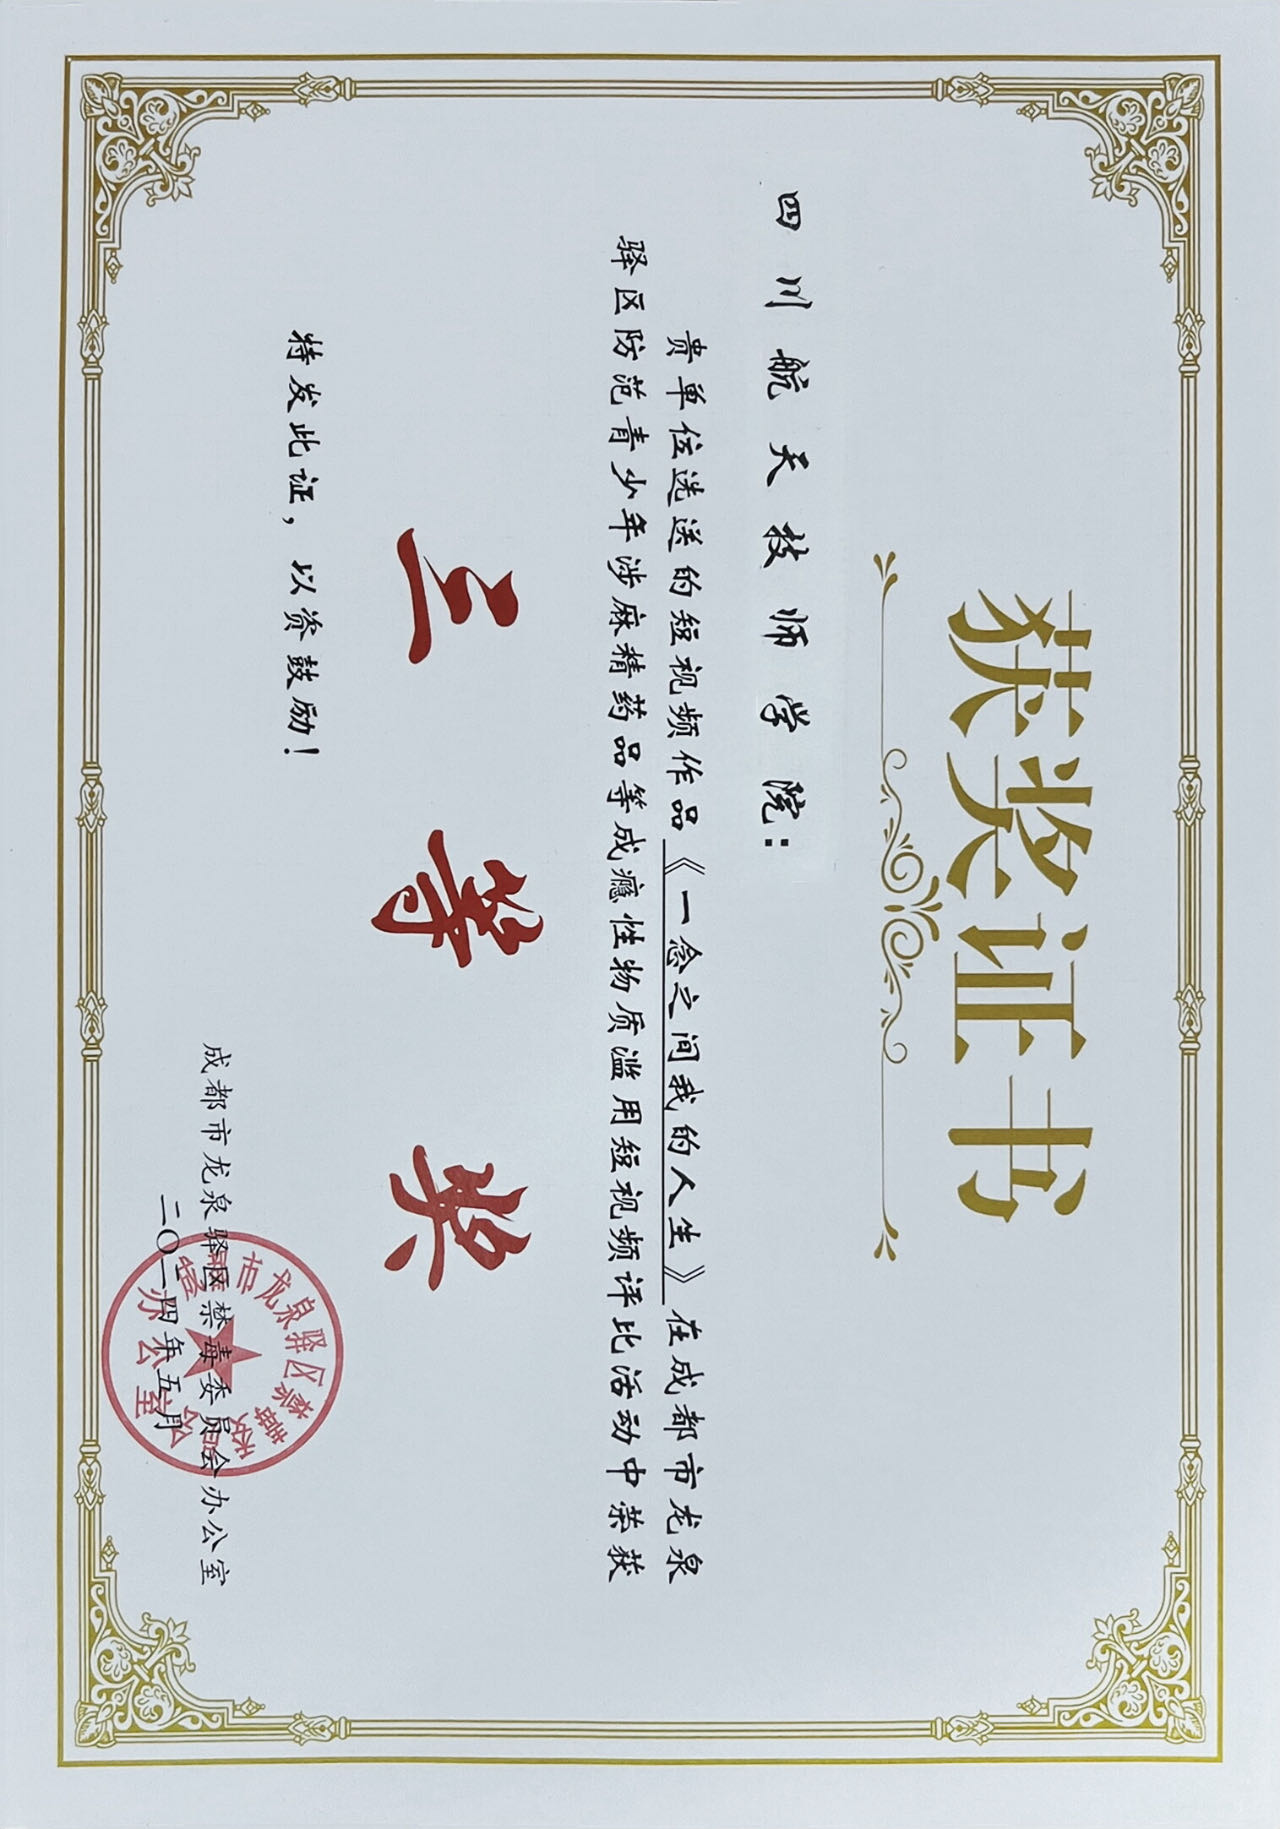 获奖证书
四川航天技师学院：
贵单位选送的短视频作品《一念之间我的人生》在成都市龙泉
驿区防范青少年涉麻精药品等成瘾性物质滥用短视频评比活动中荣获
三等奖
特发此证，以资鼓励！
成都市龙泉驿区禁毒委员会办公室
二〇二四年五月